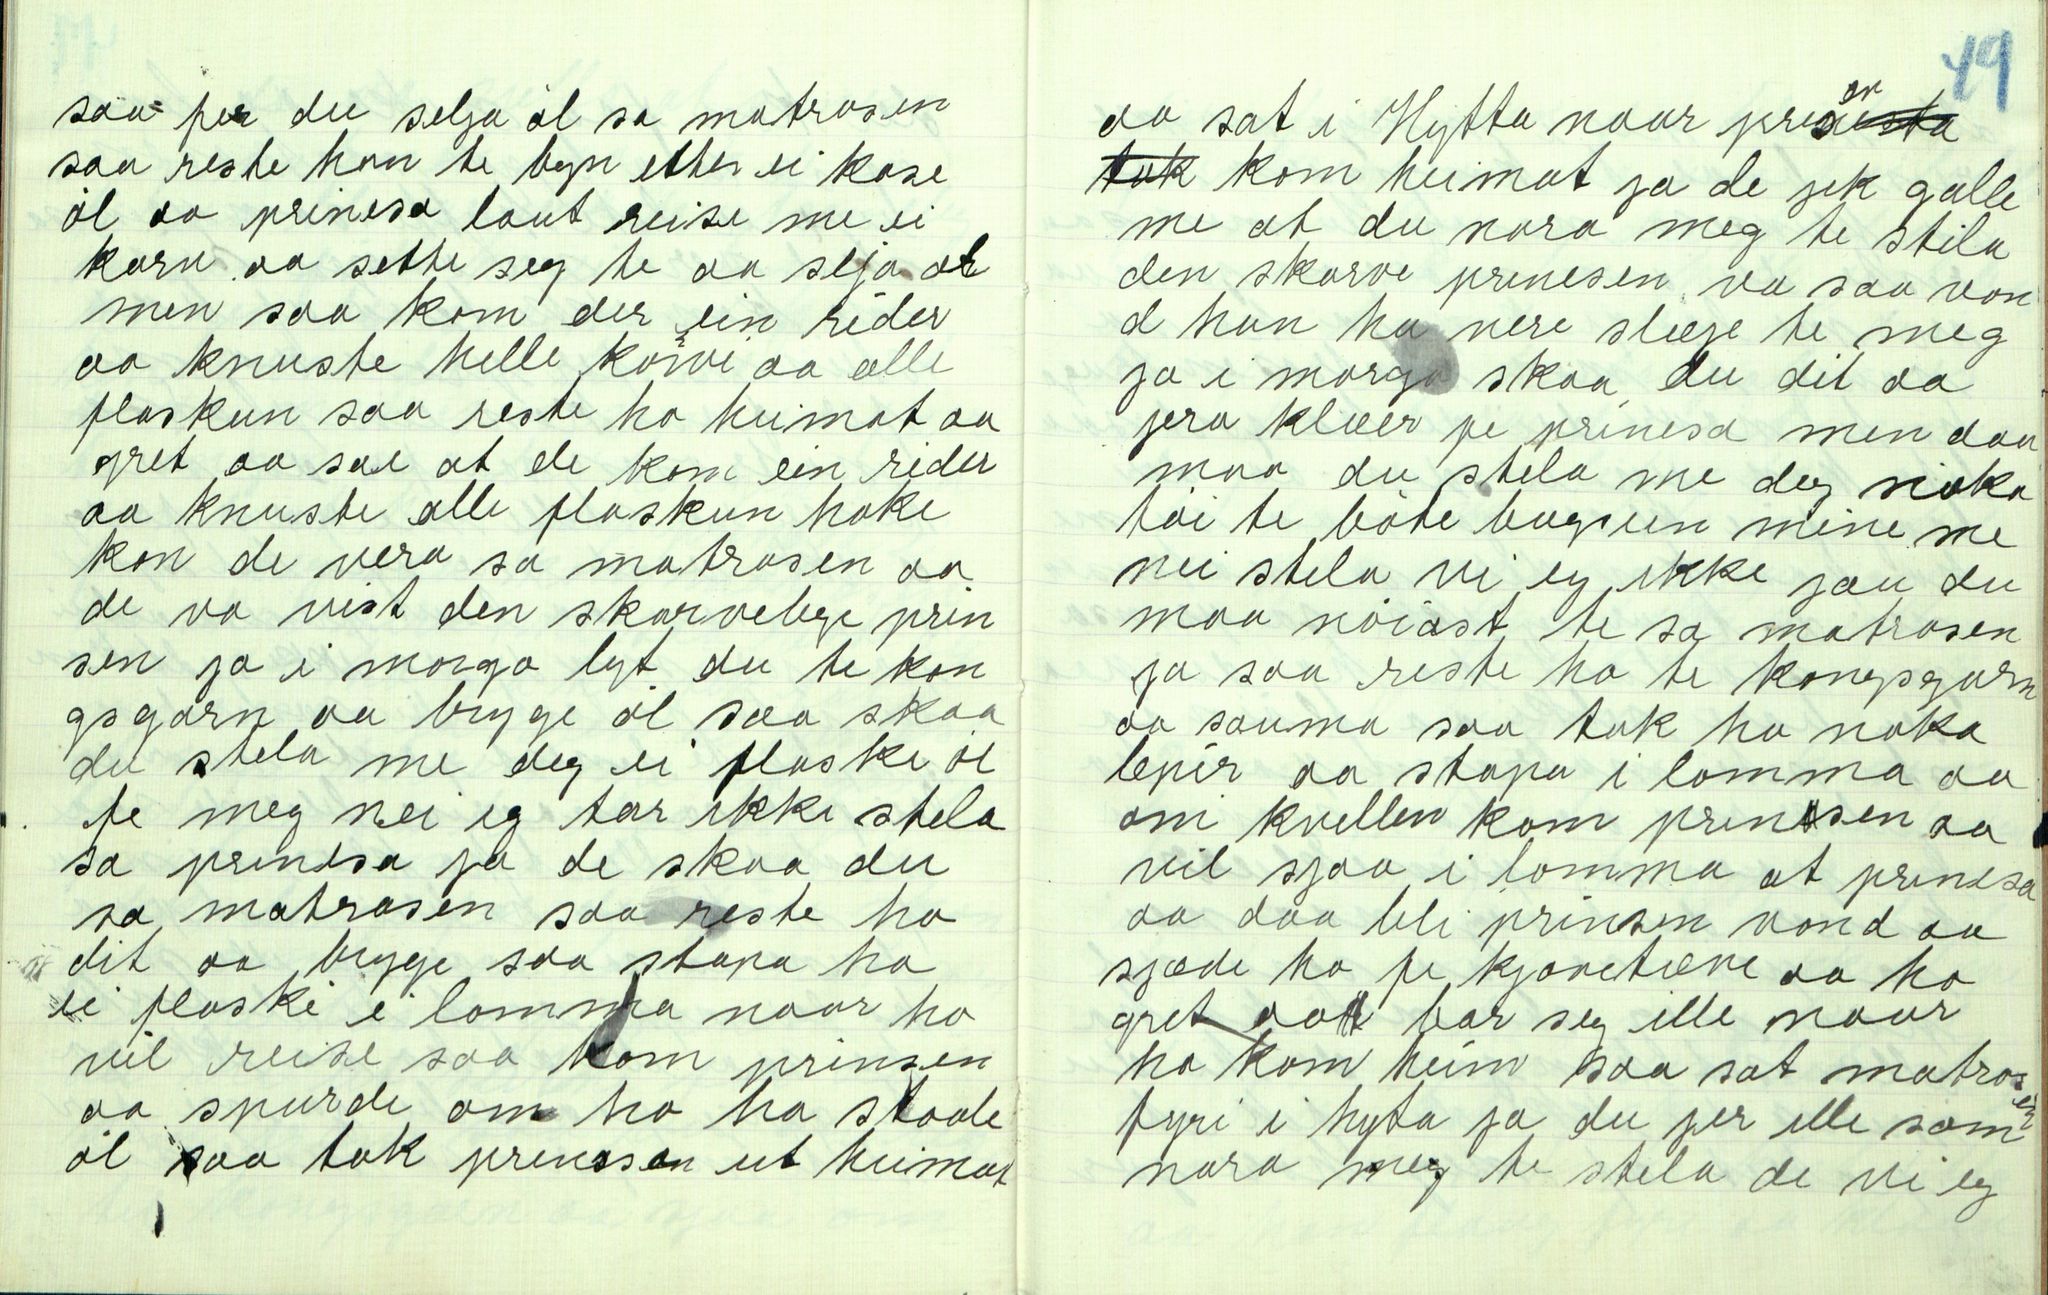 saa per du selja øl sa matrosen
saa reste han te byn etter ei kase
øl aa prinesa laut reise me ei
karu aa sette seg te aa selja øl
men saa kom der ein rider
aa knuste helle kørvi aa alle
flaskun saa reste ho heimat aa
gret aa sae at de kom ein rider
aa knuste alle flaskun hoke
kon de vera sa matrosen aa
de va vist den skarvelege prin
sen ja i morga lyt du te kon
gsgarn aa brygge øl saa skaa
du stela me deg ei flaske øl
te meg nei eg tør ikke stela
sa prinesa ja de skaa du
sa matrosen saa reste ho
dit aa brygge saa stapa ho
ei flaske i lomma naar ho
vil reise saa kom prinsen
aa spurde om ho ha stoole
øl saa tok prinssen ut heimat
49
aa sat i Hytta naar prinsan
kom heimat ja de jek galle
me at du nara meg te stila
den skarve prinesen va saa von
d han ha nere sleje te meg
ja i morga skaa du dit aa
jera klæer fe prinesa men daa
maa du stela me deg noka
tøi te bøte bugseen mine me
nei stela vi eg ikke jau du
maa nøiast te sa matrosen
ja saa reste ho te kongsgarn
aa sauma saa tok ho noka
lepir aa stapa i lomma aa
om kvellen kom prinsen aa
vil sjaa i lomma at prinesa
aa daa bli prinsen vond aa
sjæde ho fe kjøvetæve aa ho
gret aa bar seg ille naar
ho kom heim saa sat matrosen
fyri i hyta ja du jer ille som
nara meg te stela de vi eg